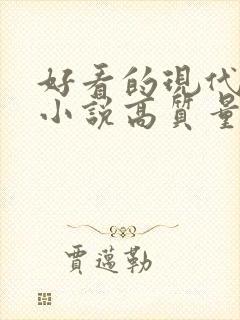 好看的現代
小說高質量
賈邁勒